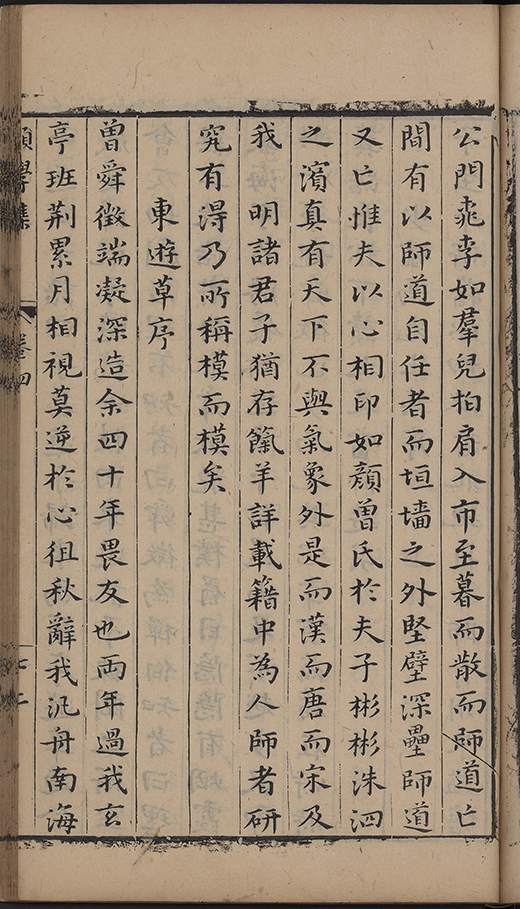 公門桃李如羣兒拍肩入市至暮而散而師道亡
間有以師道自任者而垣墻之外堅壁深壘師道
又亡惟夫以心相印如顏曾氏於夫子彬彬洙泗
之濱真有天下不與氣象外是而漢而唐而宋及
我 明諸君子猶存餼羊詳載籍中為人師者研
究有得乃所稱模而模矣
東遊草序
曾舜徵端凝深造余四十年畏友也兩年過我玄
亭班荆累月相視莫逆於心徂秋辭我汎舟南海
學集 卷四